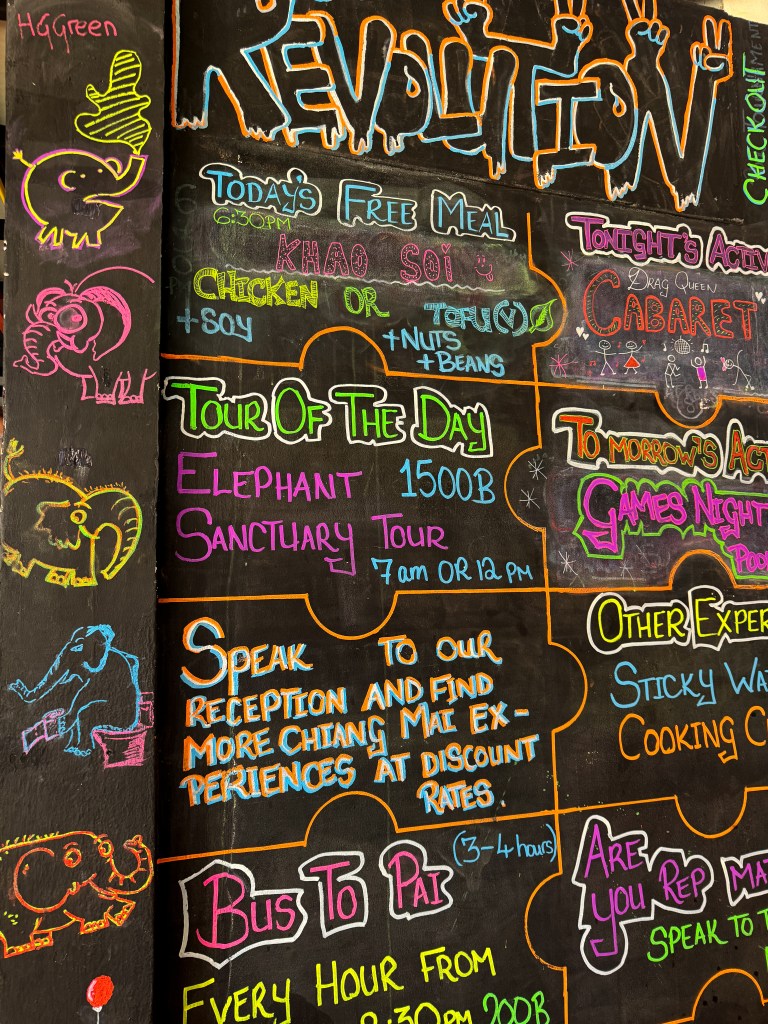 HGGreen
REVOLUTION
CHECKOUT
TODAY'S FREE MEAL
6:30PM
KHAO SOI
CHICKEN OR TOFU (V)
+SOY
+NUTS
+BEANS
TONIGHT'S
DRAG QUEEN
CABARET
TOUR OF THE DAY
ELEPHANT 1500B
SANCTUARY TOUR
7am OR 12 PM
TOMORROW'S
GAMES NIGHT
SPEAK TO OUR
RECEPTION AND FIND
MORE CHIANG MAI EX-
PERIENCES AT DISCOUNT
RATES.
OTHER
STICKY
COOKING
(3-4 hours)
BUS TO PAI
EVERY HOUR FROM
200B
ARE
YOU REP
SPEAK TO